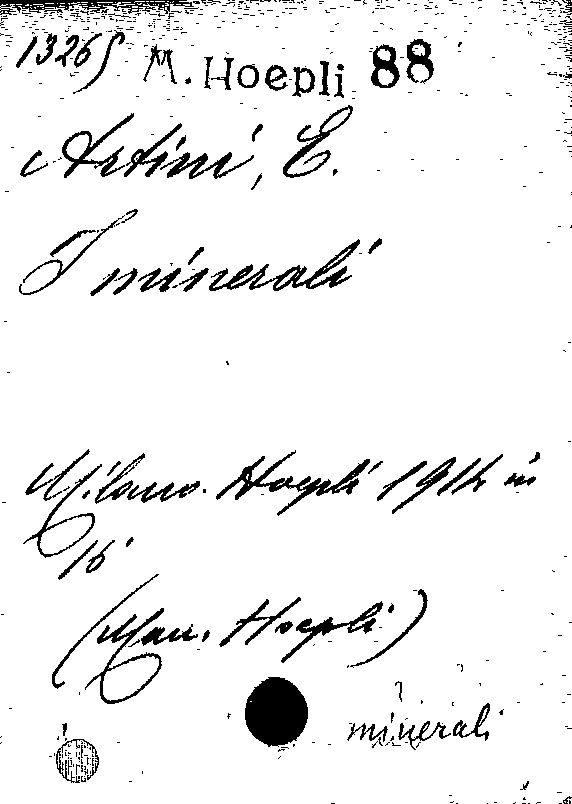 M. Hoepli 88
Artini, E.
I minerali
Milano. Hoepli 1914 in
16°
(Man. Hoepli)
minerali